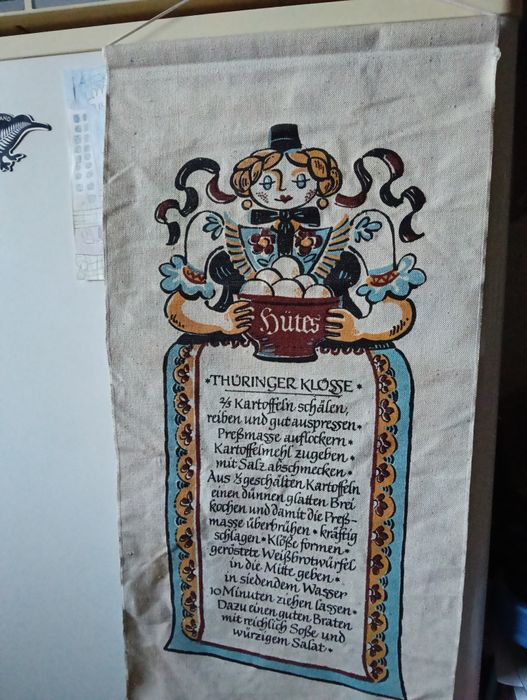 Hütes
THÜRINGER KLÖSSE
⅔ Kartoffeln schälen,
reiben und gut auspressen •
Preßmasse auflockern •
Kartoffelmehl zugeben •
mit Salz abschmecken •
Aus ⅓ geschälten Kartoffeln
einen dünnen glatten Brei
kochen und damit die Preß-
masse überbrühen • kräftig
schlagen • Klöße formen •
geröstete Weißbrotwürfel
in die Mitte geben •
in siedendem Wasser
10 Minuten ziehen lassen •
Dazu einen guten Braten
mit reichlich Soße und
würzigem Salat •